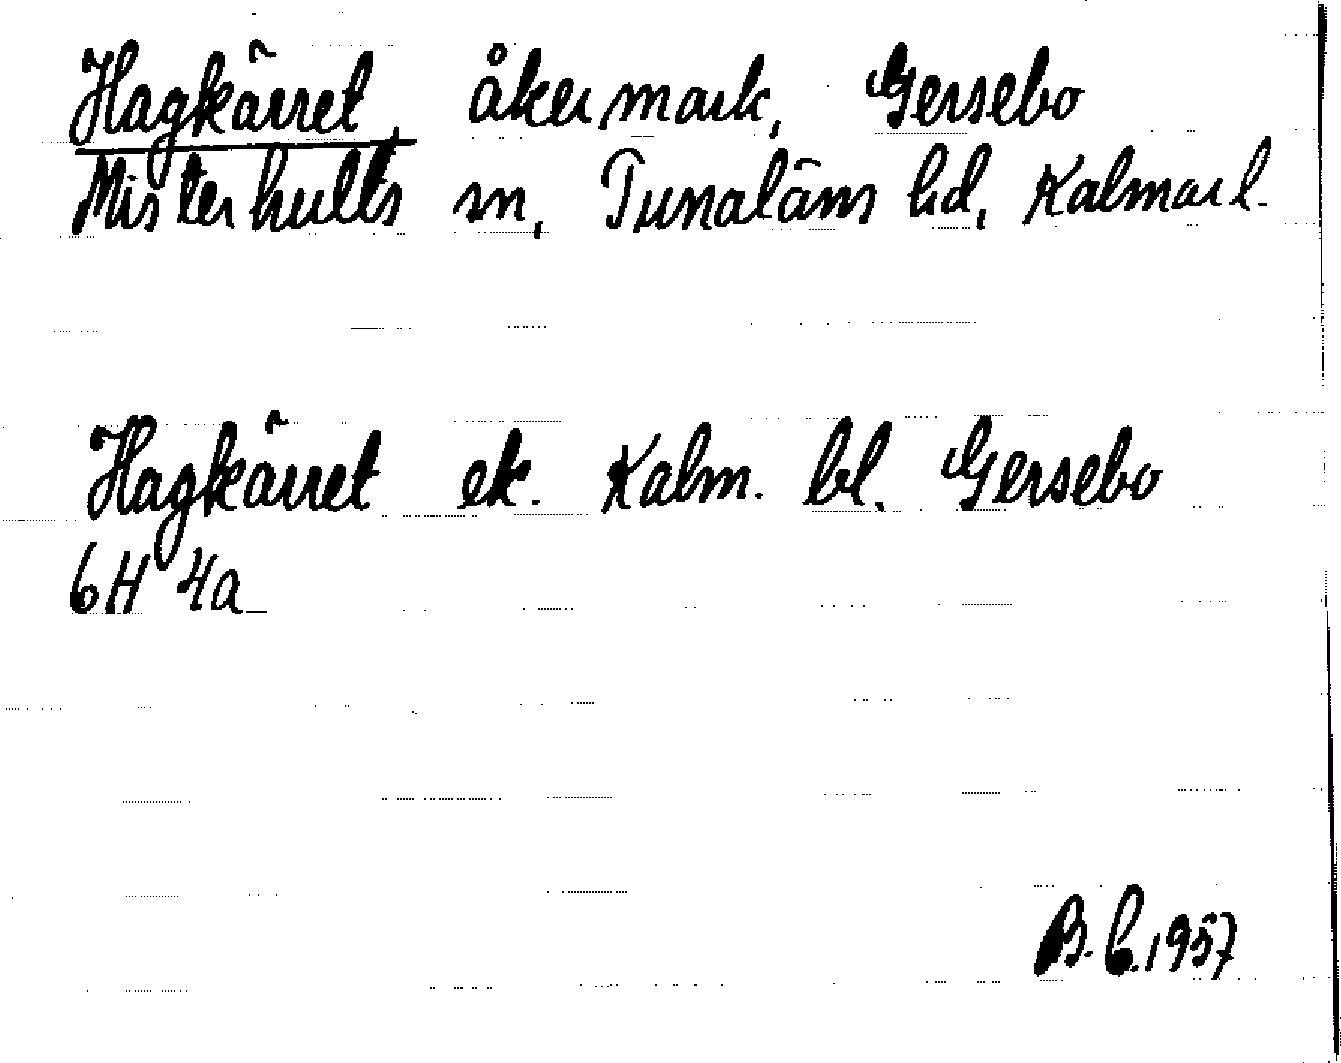 Hagkärret, åkermark, Gersebo
Misterhults sn, Tunaläns hd, Kalmar l.
Hagkärret ek. Kalm. bl. Gersebo
6H 4a
B. 1957